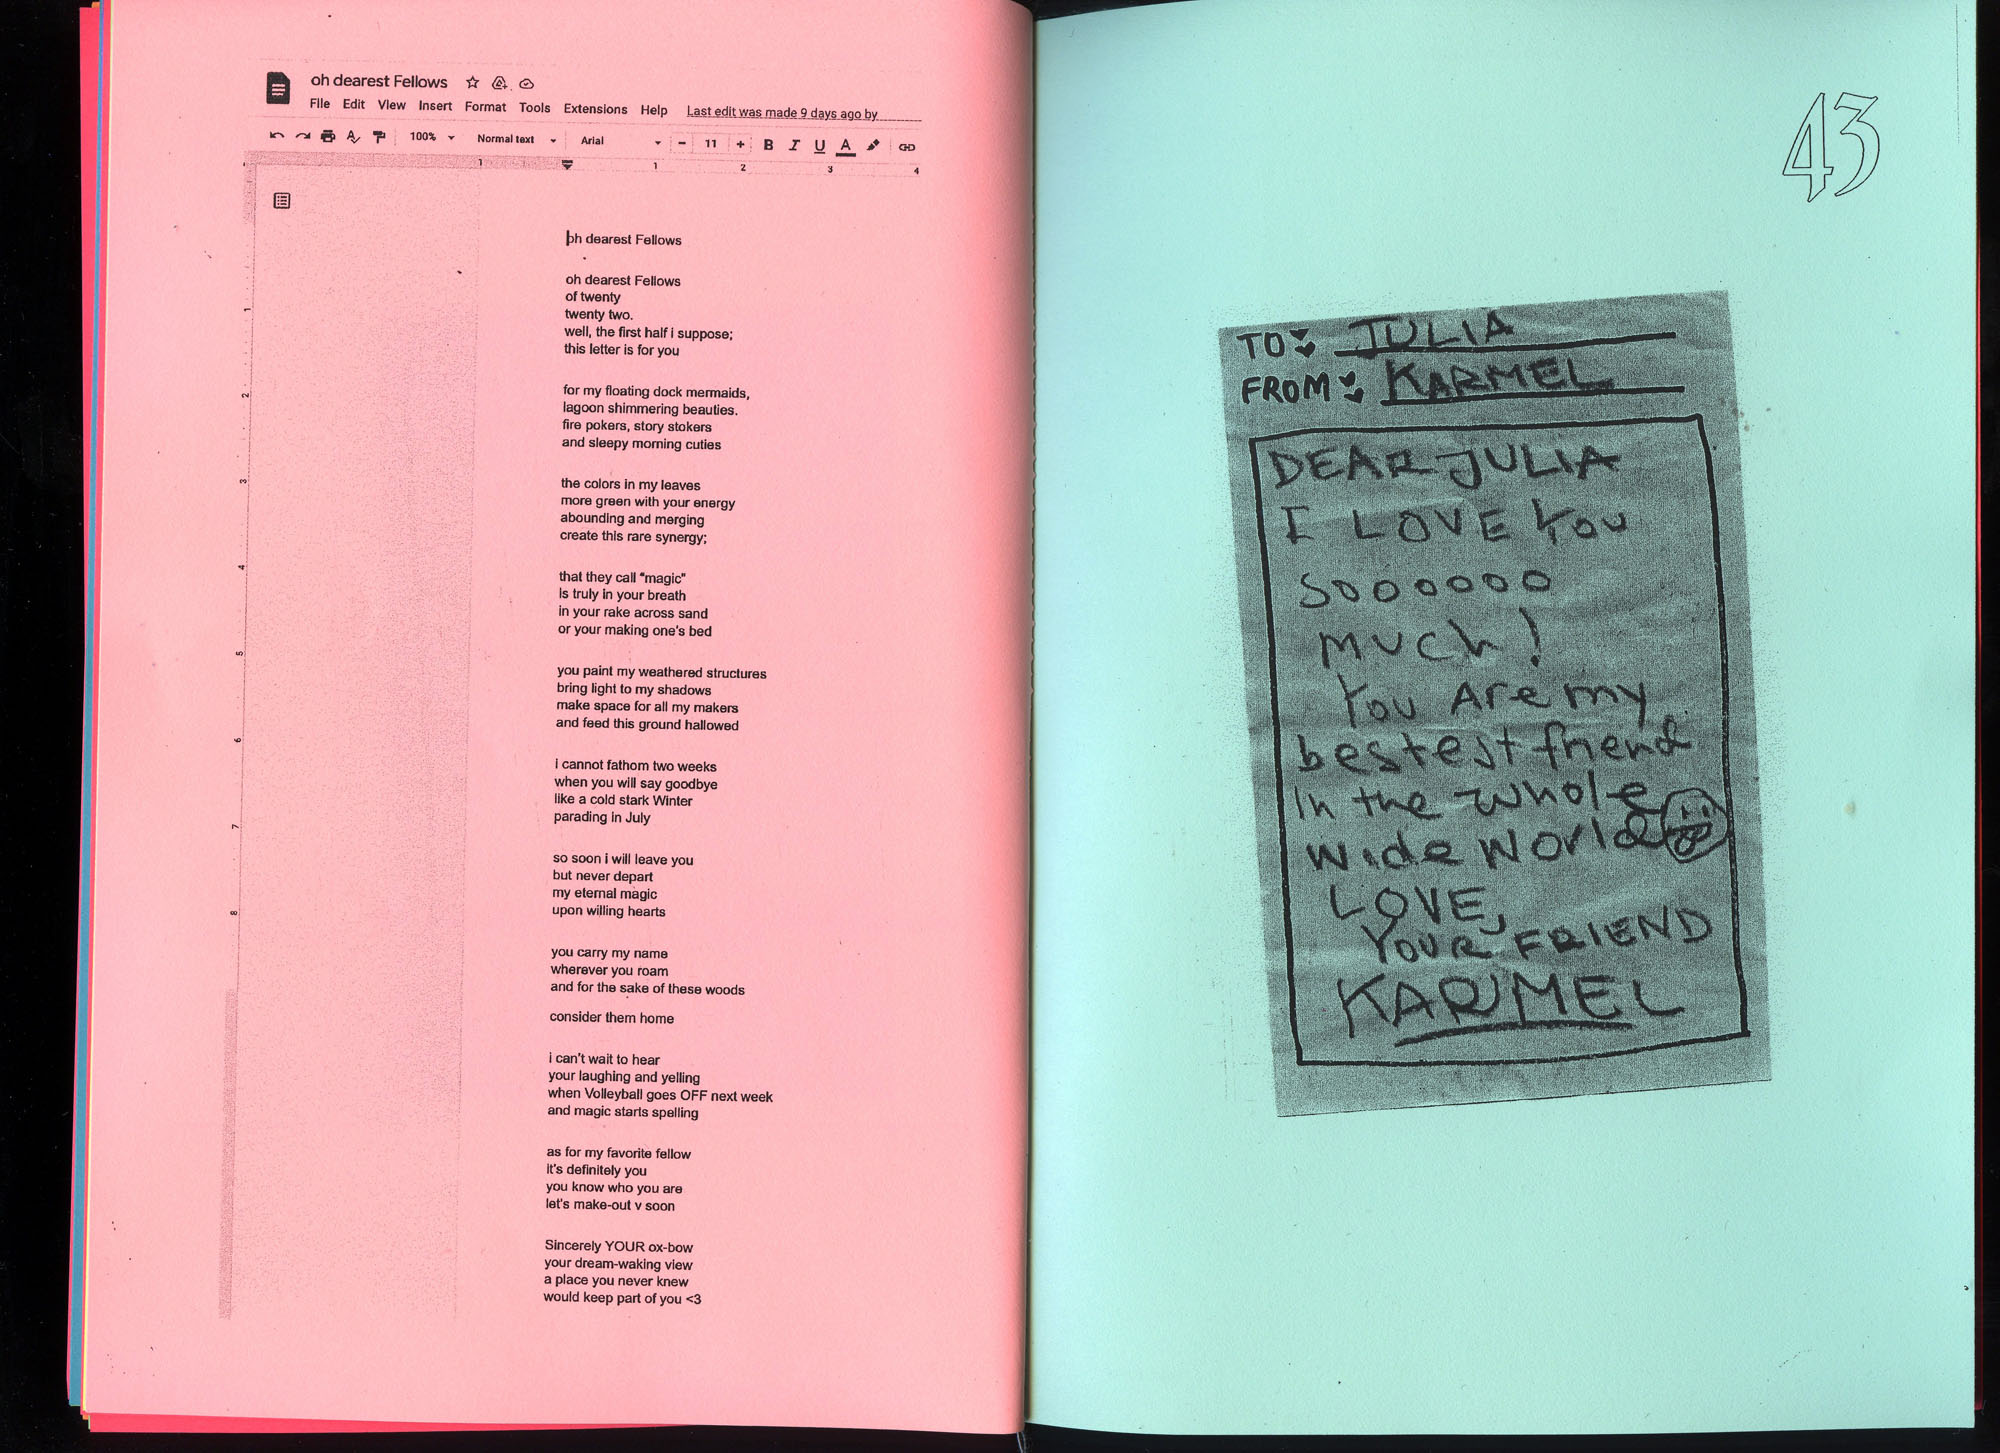 oh dearest Fellows
File Edit View Insert Format Tools Extensions Help Last edit was made 9 days ago by
100% Normal text Arial - 11 + B I U A
1 1 2 3 4
1
2
3
4
5
6
7
8
oh dearest Fellows
oh dearest Fellows
of twenty
twenty two.
well, the first half i suppose;
this letter is for you
for my floating dock mermaids,
lagoon shimmering beauties.
fire pokers, story stokers
and sleepy morning cuties
the colors in my leaves
more green with your energy
abounding and merging
create this rare synergy;
that they call "magic"
is truly in your breath
in your rake across sand
or your making one's bed
you paint my weathered structures
bring light to my shadows
make space for all my makers
and feed this ground hallowed
i cannot fathom two weeks
when you will say goodbye
like a cold stark Winter
parading in July
so soon i will leave you
but never depart
my eternal magic
upon willing hearts
you carry my name
wherever you roam
and for the sake of these woods
consider them home
i can't wait to hear
your laughing and yelling
when Volleyball goes OFF next week
and magic starts spelling
as for my favorite fellow
it's definitely you
you know who you are
let's make-out v soon
Sincerely YOUR ox-bow
your dream-waking view
a place you never knew
would keep part of you <3
43
TO: JULIA
FROM: KARMEL
DEAR JULIA
I LOVE You
SOOOOOO
much!
You Are my
bestest friend
In the whole
wide World
LOVE,
YOUR FRIEND
KARMEL